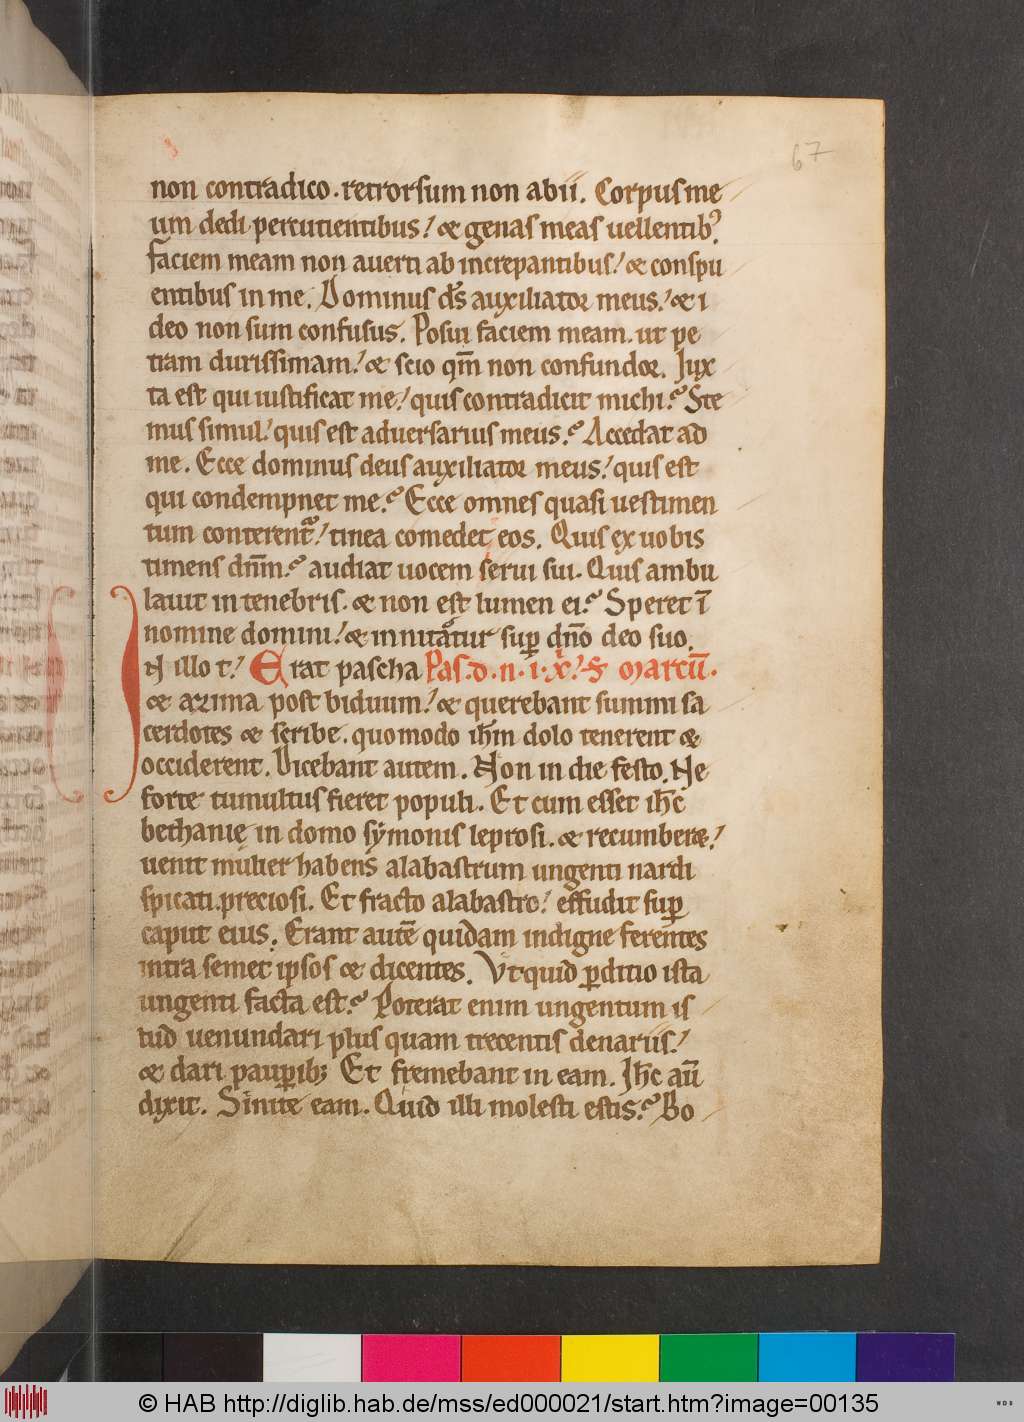 67
non contradico. retrorsum non abii. Corpus me
um dedi percutientibus! & genas meas uellentibꝰ.
faciem meam non auerti ab increpantibus! & conspu
entibus in me. Dominus ds̄ auxiliator meus! & i
deo non sum confusus. Posui faciem meam. ut pe
tram durissimam! & scio qm̄ non confundor. Jux
ta est qui iustificat me! quis contradicit michi? Ste
mus simul! quis est aduersarius meus? Accedat ad
me. Ecce dominus deus auxiliator meus! quis est
qui condempnet me? Ecce omnes quasi uestimen
tum conterentᷓ! tinea comedet eos. Quis ex uobis
timens dn̄m? audiat uocem serui sui. Quis ambu
lauit in tenebris. & non est lumen ei? Speret ī
nomine domini! & innitatur suꝑ dn̄o deo suo.
IN illo t! Erat pascha Pas. d. n. i. x! s̄ Marcū.
& azima post biduum! & querebant summi sa
cerdotes & scribe. quomodo ih̄m dolo tenerent &
occiderent. Dicebant autem. Non in die festo. Ne
forte tumultus fieret populi. Et cum esset ih̄c
bethanię in domo sẏmonis leprosi. & recumberet!
uenit mulier habens alabastrum ungenti nardi
spicati. preciosi. Et fracto alabastro! effudit suꝑ
caput eius. Erant autē quidam indigne ferentes
intra semet ipsos & dicentes. Vt quid ꝑditio ista
ungenti facta est? Poterat enim ungentum is
tud uenundari plus quam trecentis denariis!
& dari pauꝑibꝫ Et fremebant in eam. Ih̄c aū
dixit. Sinite eam. Quid illi molesti estis? Bo
© HAB http://diglib.hab.de/mss/ed000021/start.htm?image=00135